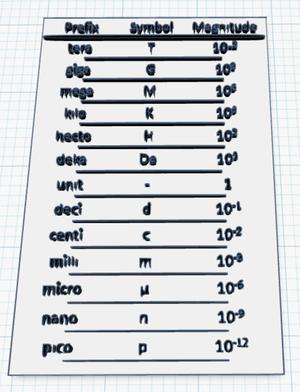 Prefix Symbol Magnitude
tera T
giga G 10⁹
mega M 10⁶
kilo K
hecto H 10²
deka Da
unit - 1
deci d 10⁻¹
centi c 10⁻²
milli m 10⁻³
micro μ 10⁻⁶
nano n 10⁻⁹
pico p 10⁻¹²